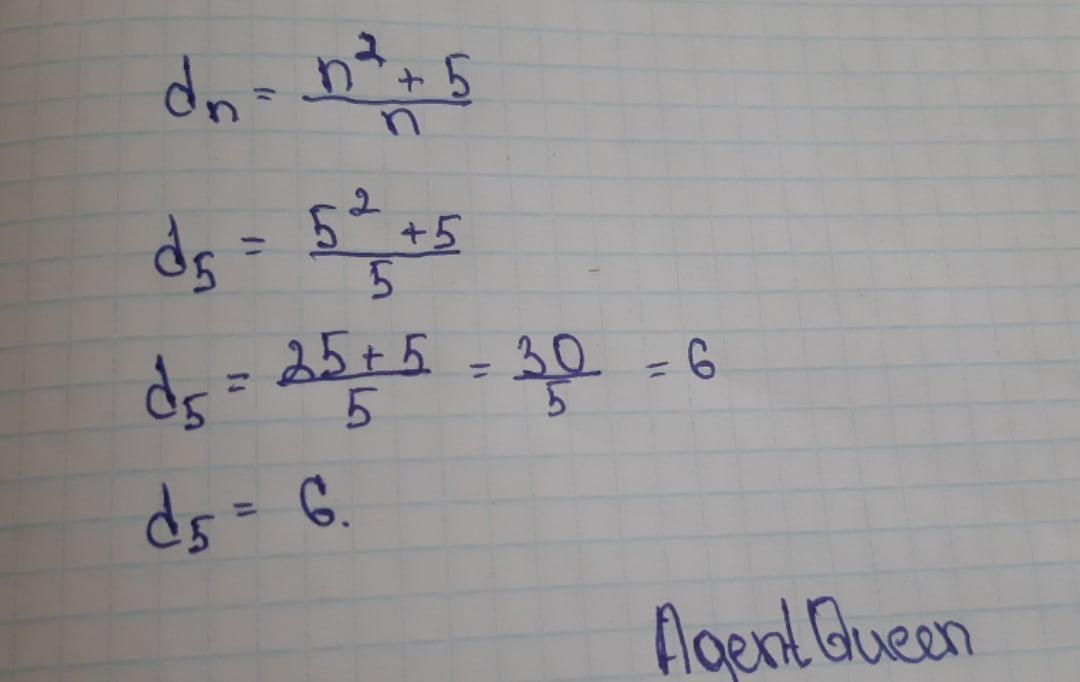 dₙ = (n² + 5)/n
d₅ = (5² + 5)/5
d₅ = (25 + 5)/5 = 30/5 = 6
d₅ = 6.
Agent Queen